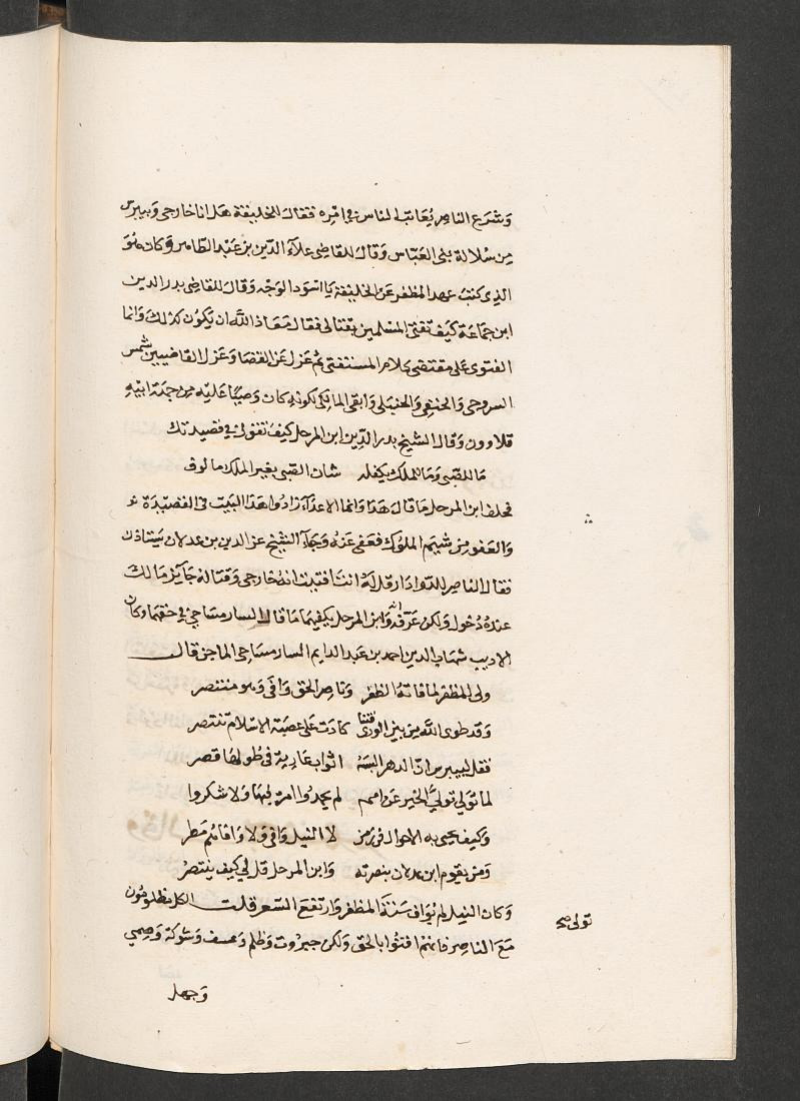 وَشَرَع الناصر يُعَاتب الناس في امره فقال للخليفة هل انا خارجي وبيبرس
من سلالة بنى العَبّاس وَقال للقاضى علاء الدّين بن عَبْد الظاهر وَكان هُوَ
الذى كتبَ عهد المظفر عَن الخليفة يا اسْوَد الوَجْه وَقال للقاضى بدر الدين
ابن جمَاعَة كيَف تفتى المسْلمين بقتالى فقال مَعَاذ اللّه ان يَكُون كذلك وَانما
الفتوى على مقتضى كلام المستفتى ثم عَزل عَن القضَا وَعَزل القاضيين شمس
السروجى وَالحنفى وَالحنبلى وَابقى المالكى لكونه كان وَصيًا عَليْه من جهَة ابيْهِ
قلاوون وَقال الشيخ بدر الدّين ابن المرحل كيفَ تقول في قصيدتك
مَا للصَّبى وَمَا للملك يكفله شان الصّبى بغير الملك مالوف
فحلف ابن المرحل مَا قال هَذا وَانما الاعدَآء زادوا هَذا البَيت في القصيْدَة
وَالعَفو من شيَم الملوُك فعَفى عَنهُ وَجَآء الشيْخ عز الدين بن عدلان يَستاذن
فقال الناصر للدّوادَار قل لهُ انتَ افتيت انهُ خارجى وَقتاله جَآيز مَا لك
عندهُ دُخول وَلكن عَرّفهُ انهُ وَابن المرحل يكفيهمَا مَا قال السارمسَاحى في حقهمَا وَكان
الاديب شهَاب الدين احمد بن عَبد الدايم السارمسَاحى الماجن قال
ولى المظفر لما فاتهُ الظفر وَناصر الحق وَافى وَهو منتصر
وَقد طوى اللّه من بين الورَى فتنا كادَت عَلى عصبَة الاسْلام تنتصر
فقل لبيبرس انّ الدهر البسَهُ اثوابَ عَارية في طُولهَا قصر
لما تولى تولىَّ الخيْر عَن امم لم يحمدُوا امرهُ فيهَا وَلا شكروا
وَكيف تمشى به الاحوال في زمن لا النيل وَافى وَلا وَافاهُم مَطر
وَمن يقوم ابن عدلان بنصرته وَابن المرحل قل لى كيف ينتصرُ
وَكان النيل لم يُوَاف سَنَة المظفر وَارتفعَ السّعر قلت الكل مظلومُون
مَعَ الناصر فانهم افتوا بالحق وَلكن جبرُوت وَظلم وَعسف وَشوكة وَصبى
تولى صح
وَجهل